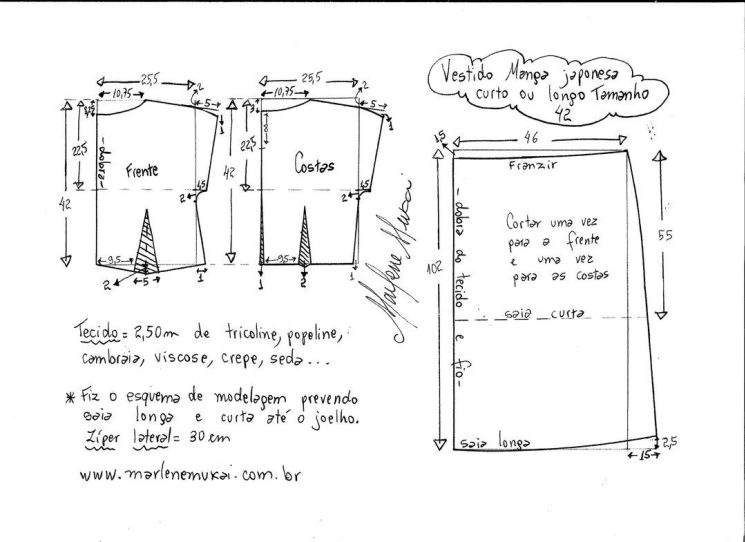 Vestido Manga japonesa
curto ou longo Tamanho
42
25,5
10,75
2
5
1
22,5
42
-dobra-
Frente
1,5
2
9,5
2
5
1
25,5
10,75
2
3
5
1
8
22,5
42
Costas
1,5
2
9,5
1
2
1
Marlene Mukai
46
1,5
Franzir
-dobra do tecido e fio-
Cortar uma vez
para a frente
e uma vez
para as costas
55
102
saia curta
saia longa
2,5
15
Tecido = 2,50m de tricoline, popeline,
cambraia, viscose, crepe, seda...
* Fiz o esquema de modelagem prevendo
saia longa e curta até o joelho.
Zíper lateral = 30 cm
www.marlenemukai.com.br